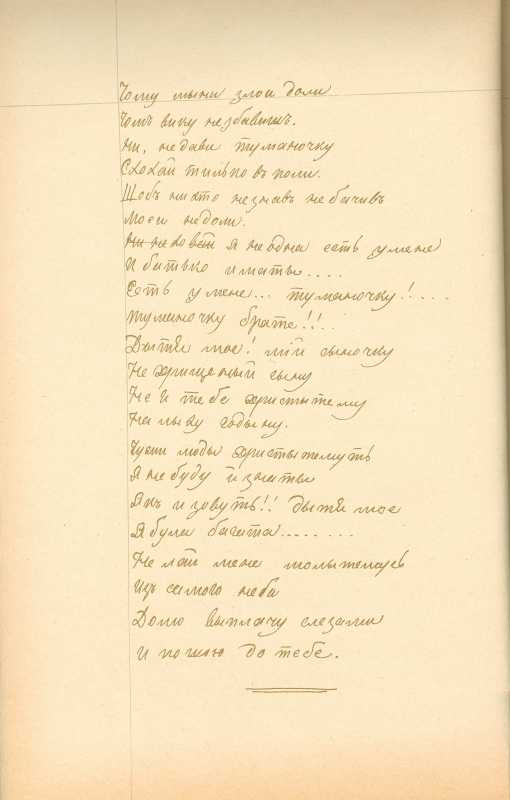 Чому мыни злои доли
Чомъ вику незбавишъ.
Ни, недави туманочку
Сховай тилько въ поли.
Щобъ нихто незнавъ небачивъ
Моеи недоли.
Ни неховай я неодна есть умене
И батько имати....
Есть умене... туманочку!....
туманочку брате!!!.
Дытя мое! мій сыночку
Не хрищеный сыну
Не и тебе христытему
На лыху годыну.
Чужи люды христытемуть
Я небуду й знаты
Якъ и зовуть!! дытя мое
Я була багата........
Не лай мене молытемусь
Изъ самого неба
Долю выплачу слезами
И пошлю до тебе.